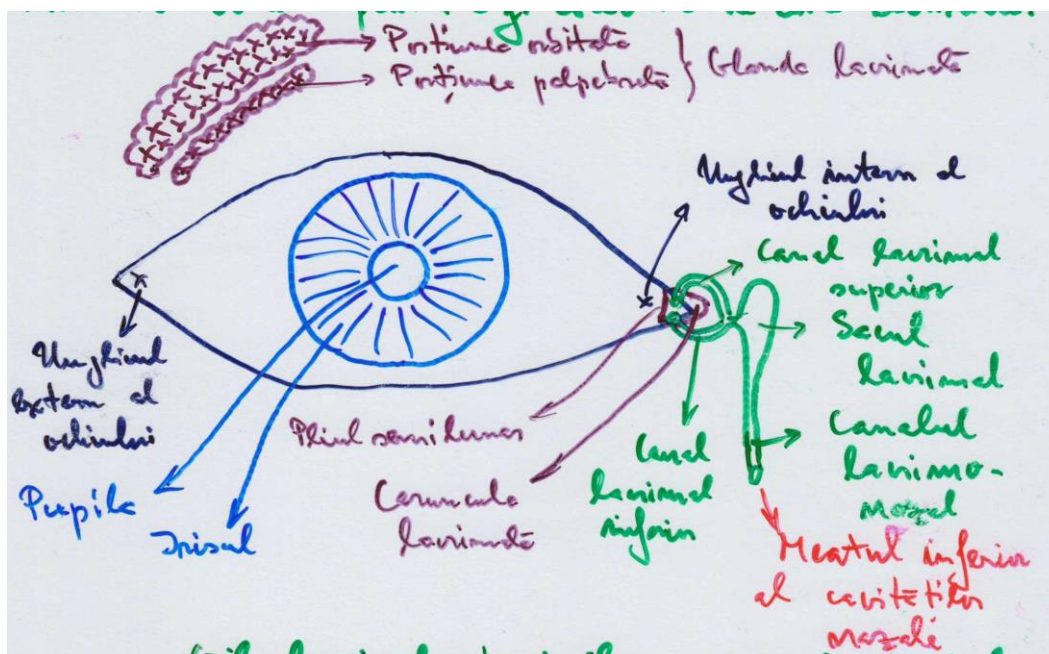 Porțiunea orbitală
Porțiunea palpebrală
Glanda lacrimală
Unghiul intern al
ochiului
Canal lacrimal
superior
Sacul
lacrimal
Canalul
lacrimo-
nazal
Unghiul
extern al
ochiului
Pliul semilunar
Canal
lacrimal
inferior
Pupila
Irisul
Caruncula
lacrimală
Meatul inferior
al cavităților
nazale